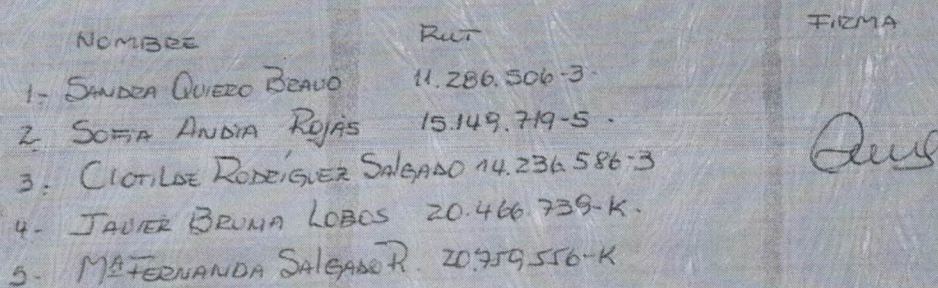 NOMBRE RUT FIRMA
1- SANDRA QUIERO BRAVO 11.286.506-3.
2. SOFIA ANDIA ROJAS 15.149.719-5.
3. CLOTILDE RODRÍGUEZ SALGADO 14.236.586-3
4- JAVIER BRUNA LOBOS 20.466.739-K.
5- Mª FERNANDA SALGADO R. 20.759.556-K